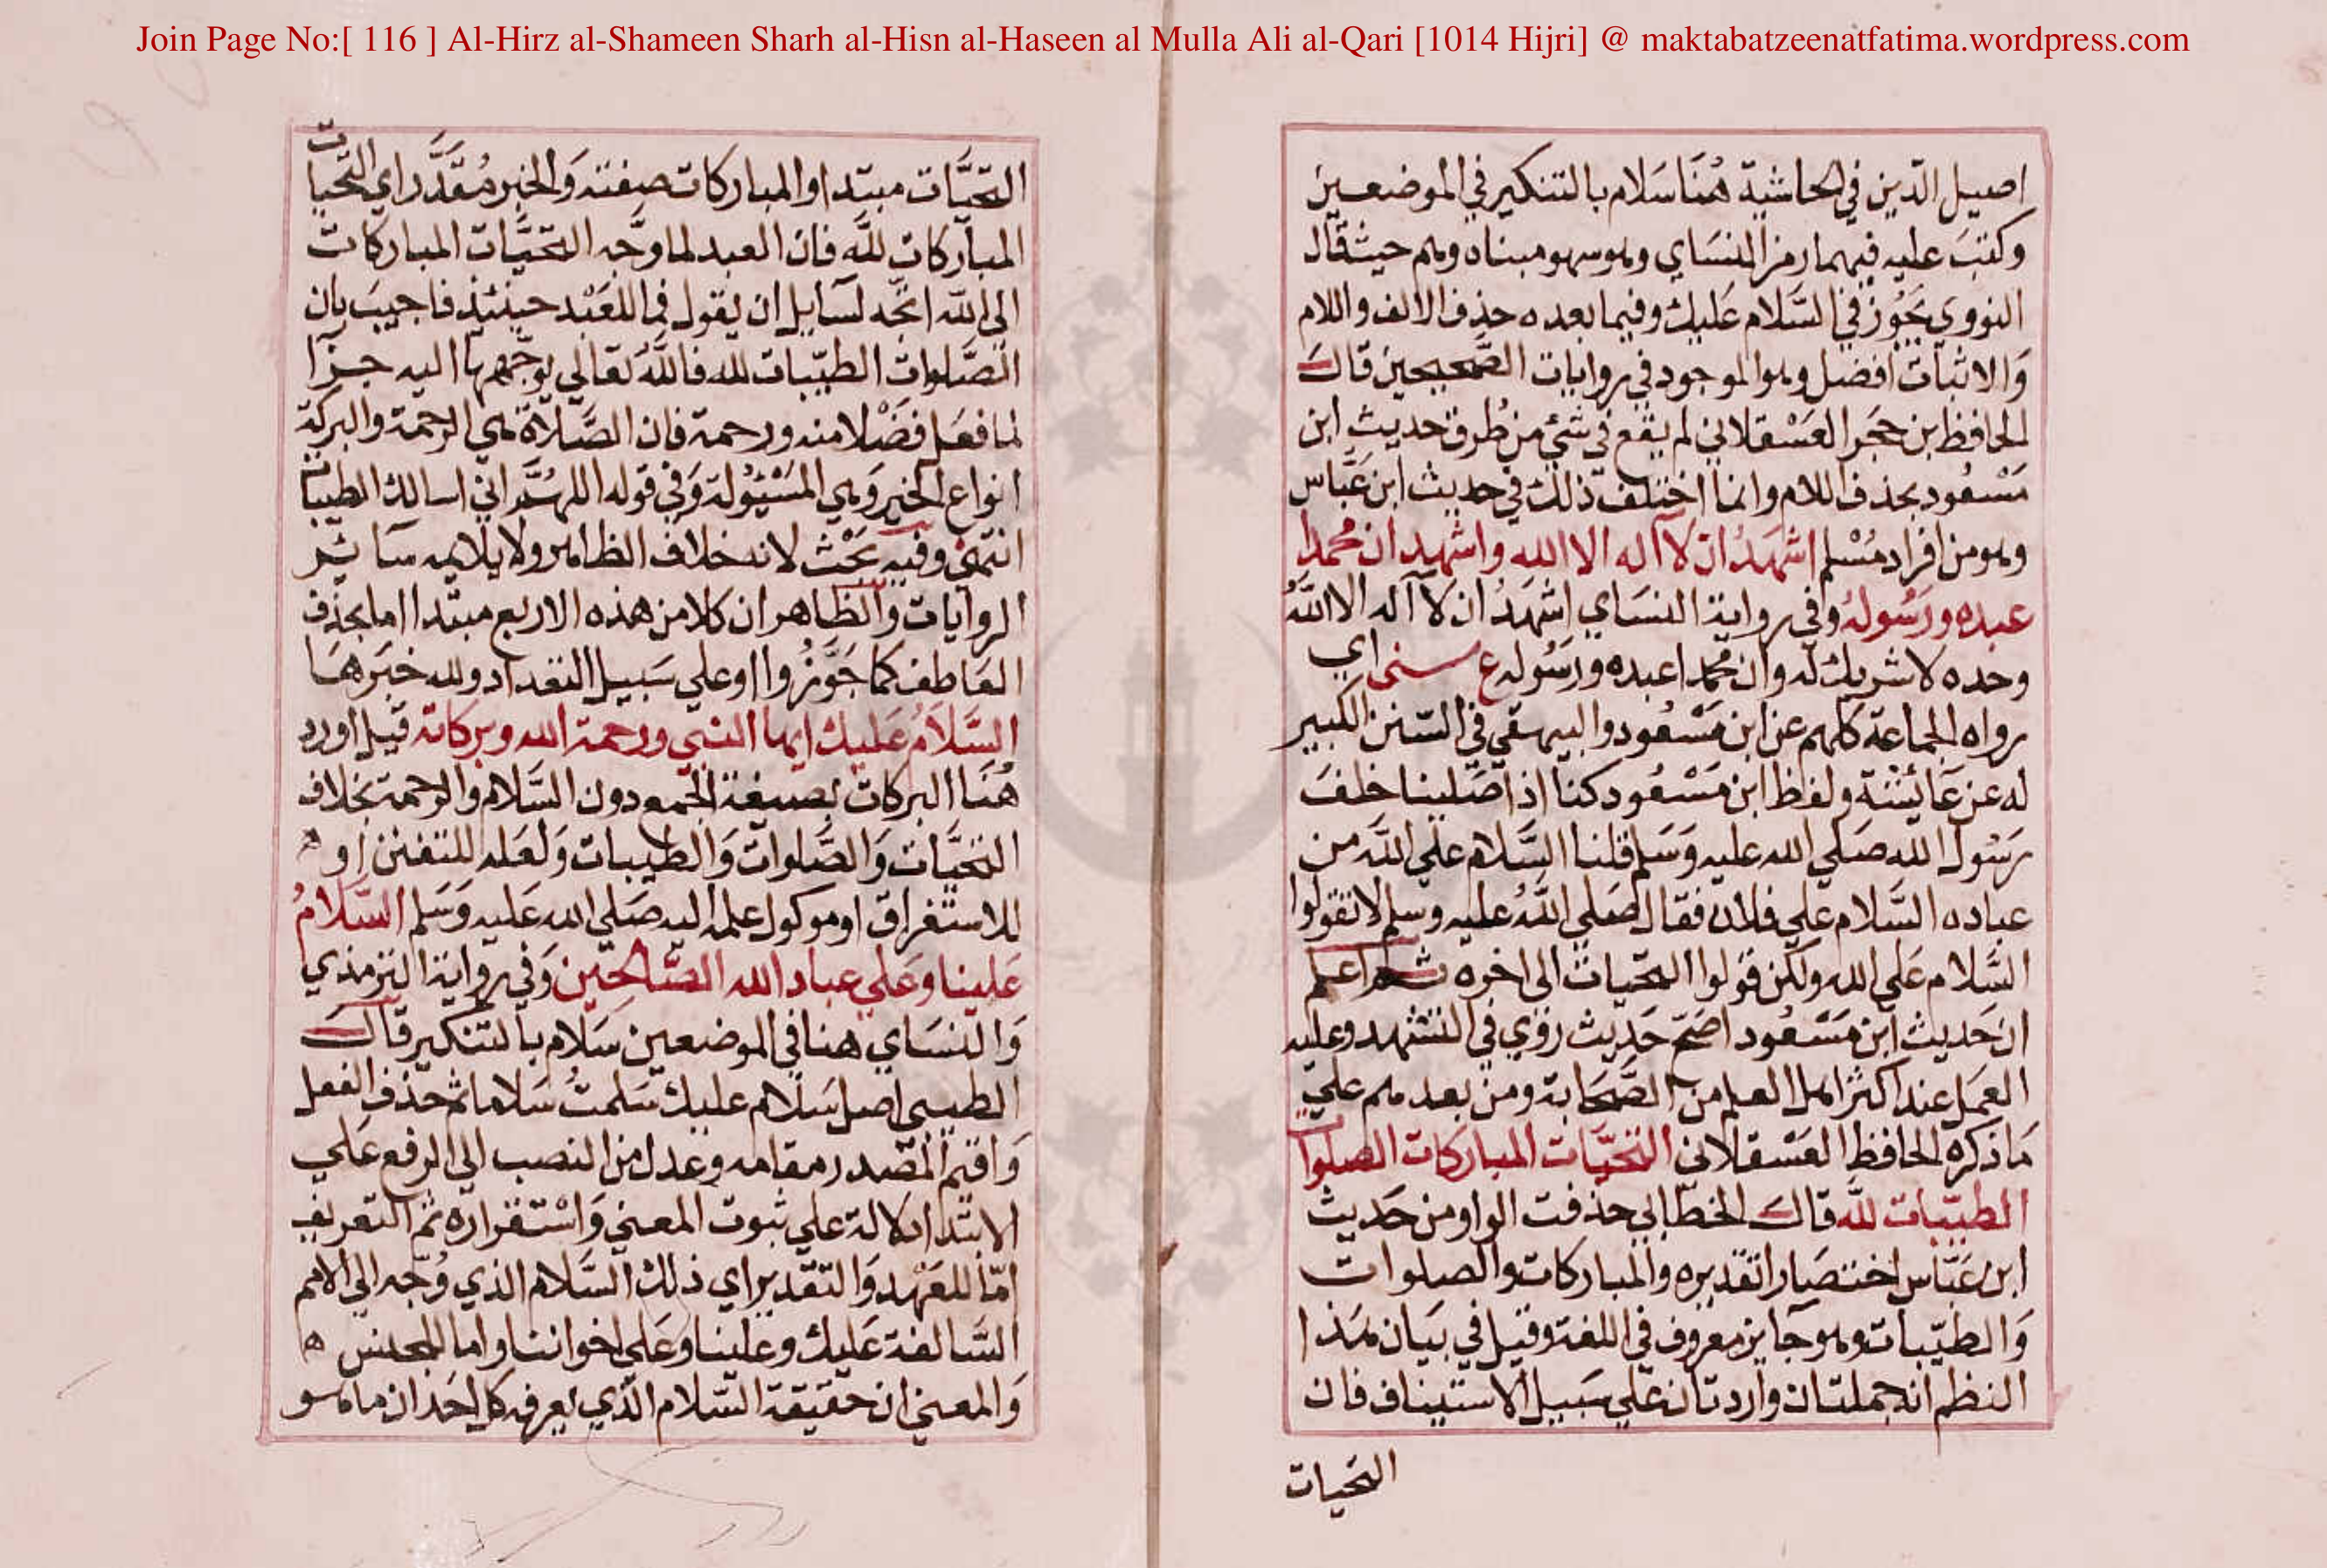 Join Page No:[ 116 ] Al-Hirz al-Shameen Sharh al-Hisn al-Haseen al Mulla Ali al-Qari [1014 Hijri] @ maktabatzeenatfatima.wordpress.com
اصيل الدّين في الحاشية هُنَا سَلام بالتنكير في الموضعين
وكتبَ عليه فيهما رمز النسَاي وهو سهو مبناه وهم حيث قال
النووي يَجُوز في السَّلام عَليك وفيما بعده حذف الالف واللام
وَالاثبات افضل وهو الموجود في روايات الصَّحيحين قالَ
الحافظ ابن حجَر العَسْقلاني لم يقع في شئ من طُرق حديث ابن
مَسْعُود بحذف اللام وانما اختلف ذلك في حديث ابن عَبَّاس
وهو من افراد مُسْلم اشهَدُ ان لا آله الا الله واشهد ان محمدا
عبده ورَسُوله وفي رواية النسَاي اشهَدُ ان لا آله الا اللهُ
وحده لا شريك له وان محمدا عبده ورَسُوله ع سنى اي
رواه الجماعَة كلهم عن ابن مَسْعُود والبيهقي في السّنن الكبير
له عن عَائِشَة ولفظ ابن مَسْعُود كنا اذا صَلينا خلفَ
رَسُول الله صَلي الله عليه وَسَلم قلنا السَّلام علي الله من
عباده السَّلام علي فلان فقال صَلي اللهُ عليه وسلم لا تقولوا
السَّلام عَلي الله ولكن قولوا التحّيات الى اخره ثم اعلم
ان حَديث ابن مَسْعُود اصَحّ حَديث رُوي في التشهد وعليه
العَمَل عند اكثر اهل العلم من الصَّحَابة ومن بعدهم علي
مَا ذكره الحافظ العَسْقلاني التحَيَّات المباركات الصلوات
الطيّبات للّه قالَ الخطّابي حذفت الواو من حَديث
ابن عَبّاس اختصَارا تقديره والمباركات والصلوات
وَالطيّبات وهو جَايز معروف في اللغة وقيل في بَيان هَذا
النظم انه جملتان واردتان عَلي سَبيل الاستيناف فان
التحيات
التحَيَّات مبتدا والمباركات صفته وَالخبر مُقَدَّر اي التحيات
المباركات للّه فان العبد لما وَجَّه التحَيَّات المباركات
الي اللّه اتجّه لسَايل ان يقول فما للعَبْد حينئذ فاجيبَ بان
الصَّلوات الطيّبات لله فاللّهُ تعَالي يوَجّهها اليه جزآ
لما فعَل فَضْلا منه ورحمة فان الصَّلاة هي الرحمة والبركة
انواع الخير وَهي المسْئُولة وَفي قوله اللهمّ اني اسالك الطيبات
انتهى وفيه بَحْث لانه خلاف الظاهر ولا يلايمه سَائر
الروايات وَالظاهر ان كلا من هذه الاربع مبتدا اما بحذف
العَاطف كما جَوَّزُوا او علي سَبيل التعداد ولله خبَرهَا
السَّلَامُ عَليك ايها النبي ورحمة الله وبركاته قيل اورد
هُنَا البركات بصيغة الجمع دون السَّلام والرحمة بخلاف
التحَيَّات وَالصَّلوات وَالطيبات وَلعَله للتفنن او ه
للاستغراق او موكول علمه اليه صَلي الله عَليه وَسَلم السَّلامُ
عَلينا وعَلي عباد الله الصَّالحين وَفي رواية الترمذي
وَالنسَاي هنا في الموضعين سَلام بالتنكير قالَ
الطيبى اصل سَلام عليك سَلمتُ سَلاما ثم حذف الفعل
وَاقيم المصْدر مقامه وعدل من النصب الي الرفع عَلي
الابتدا للدلالة علي ثبوت المعني وَاسْتقراره ثم التعريف
امّا للعَهْد وَالتقدير اي ذلك السَّلام الذي وُجّه الي الامم
السَّالفة عَليك وعلينا وعَلي اخواننا واما للجنس ه
وَالمعني ان حَقيقة السَّلام الّذي يعرفه كل احَد ان ما هو